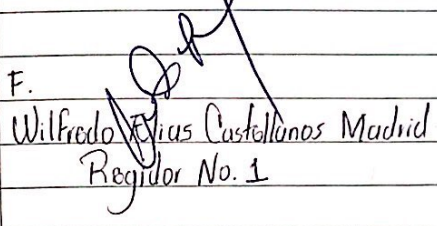 F.
Wilfredo Elias Castellanos Madrid
Regidor No. 1